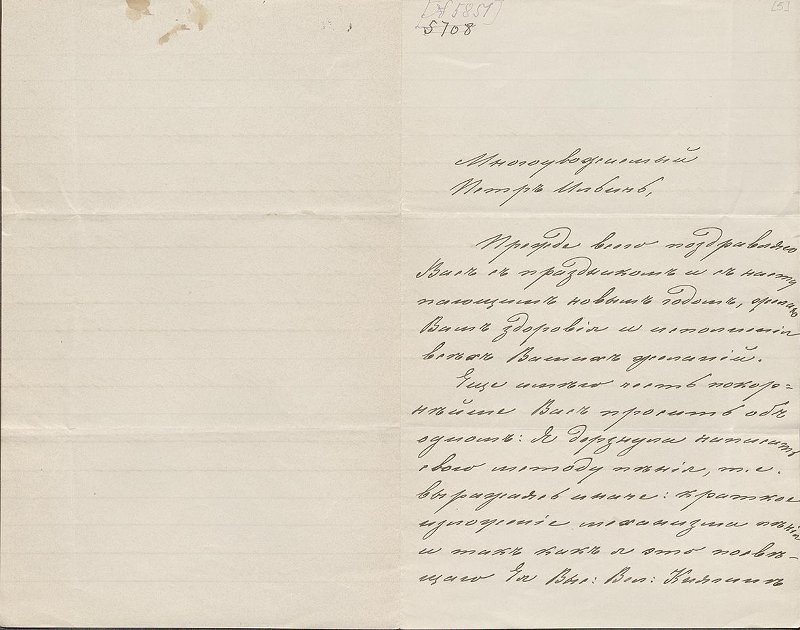 [№ 5851]
5708
[5]
Многоуважаемый
Петръ Ильичъ,
Прежде всего поздравляю
Васъ съ праздникомъ и съ насту
пающимъ новымъ годомъ, желаю
Вамъ здоровія и исполненія
всѣхъ Вашихъ желаній.
Еще имѣю честь покор=
нѣйше Васъ просить объ
одномъ: Я дерзнула написать
свою методу пѣнія, т.е.
выражаясь иначе: краткое
изложеніе механизма пѣнія
и такъ какъ я это посвя-
щаю Ея Выс: Вел: Княгинѣ